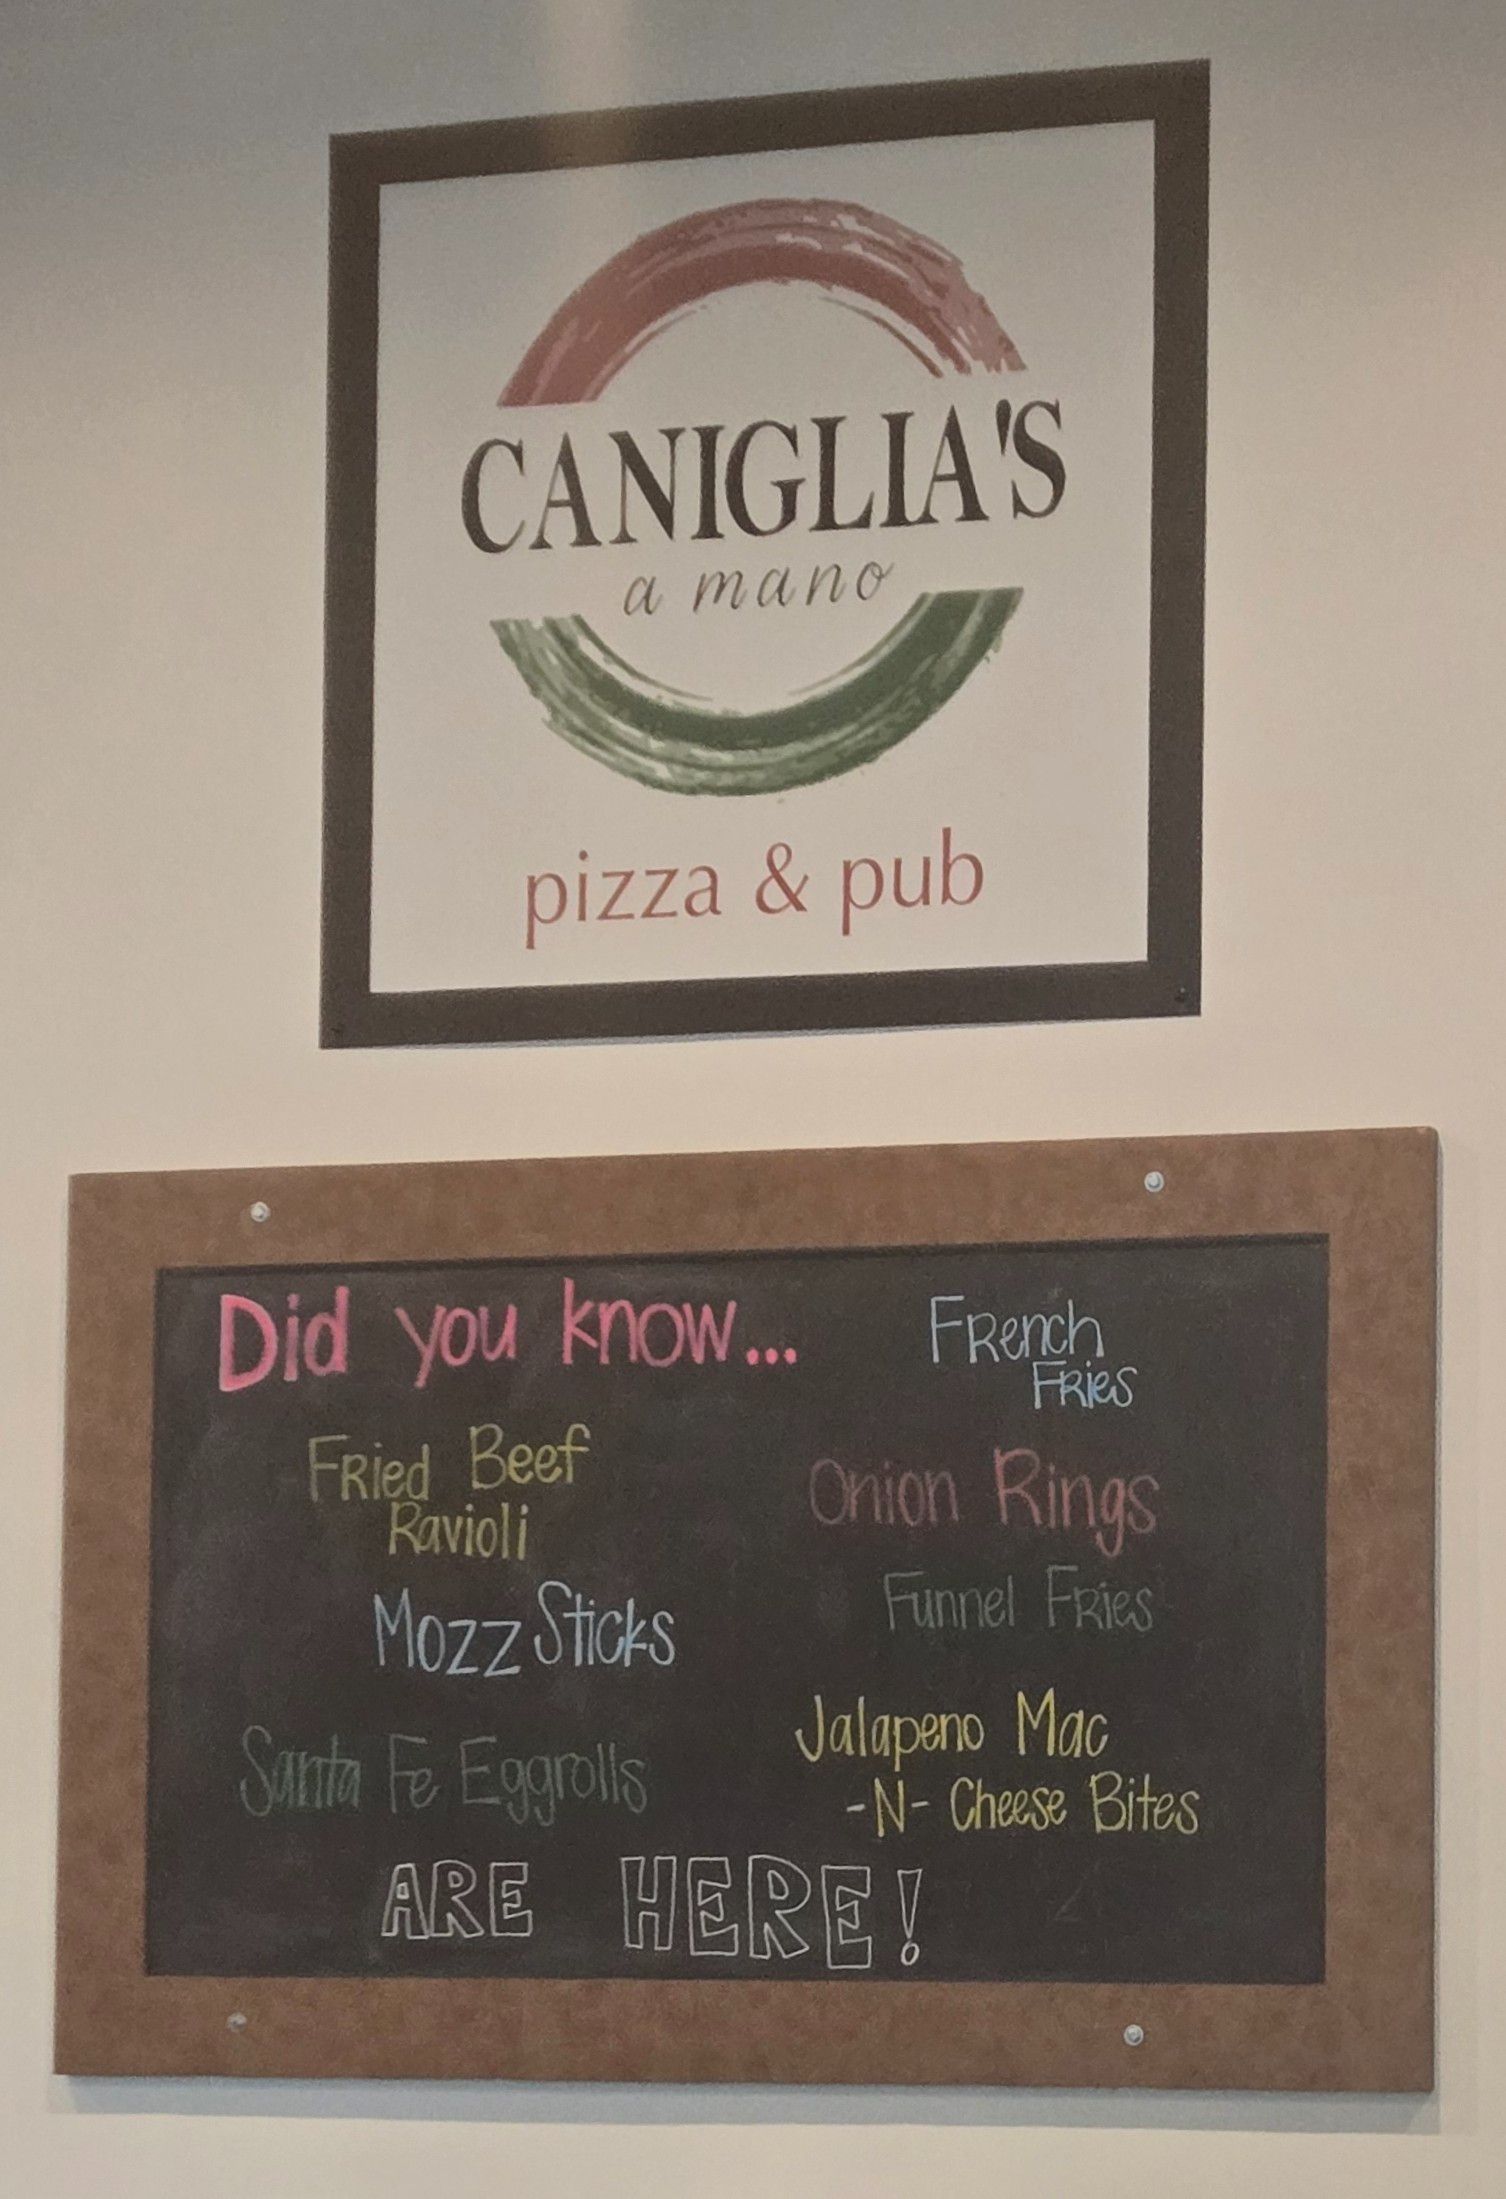 CANIGLIA'S
a mano
pizza & pub
Did you know...
Fried Beef
Ravioli
Mozz Sticks
Santa Fe Eggrolls
French
Fries
Onion Rings
Funnel Fries
Jalapeno Mac
-N- Cheese Bites
ARE HERE!